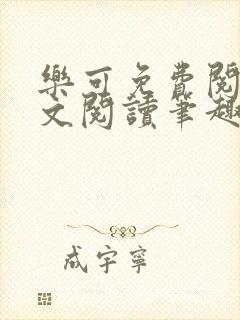 樂可免費閱
文閱讀筆趣
成宇寧